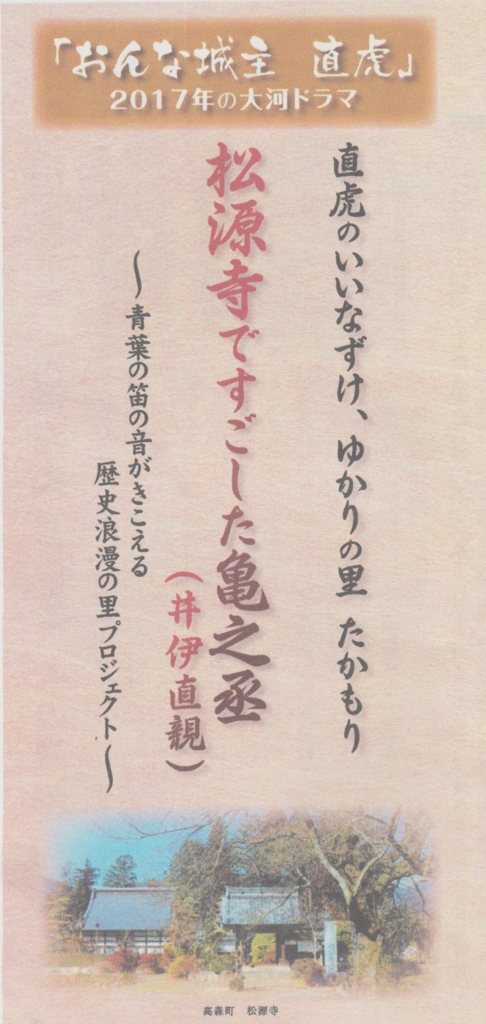 「おんな城主　直虎」
2017年の大河ドラマ
直虎のいいなずけ、ゆかりの里 たかもり
松源寺ですごした亀之丞
（井伊直親）
〜青葉の笛の音がきこえる
歴史浪漫の里プロジェクト〜
高森町　松源寺